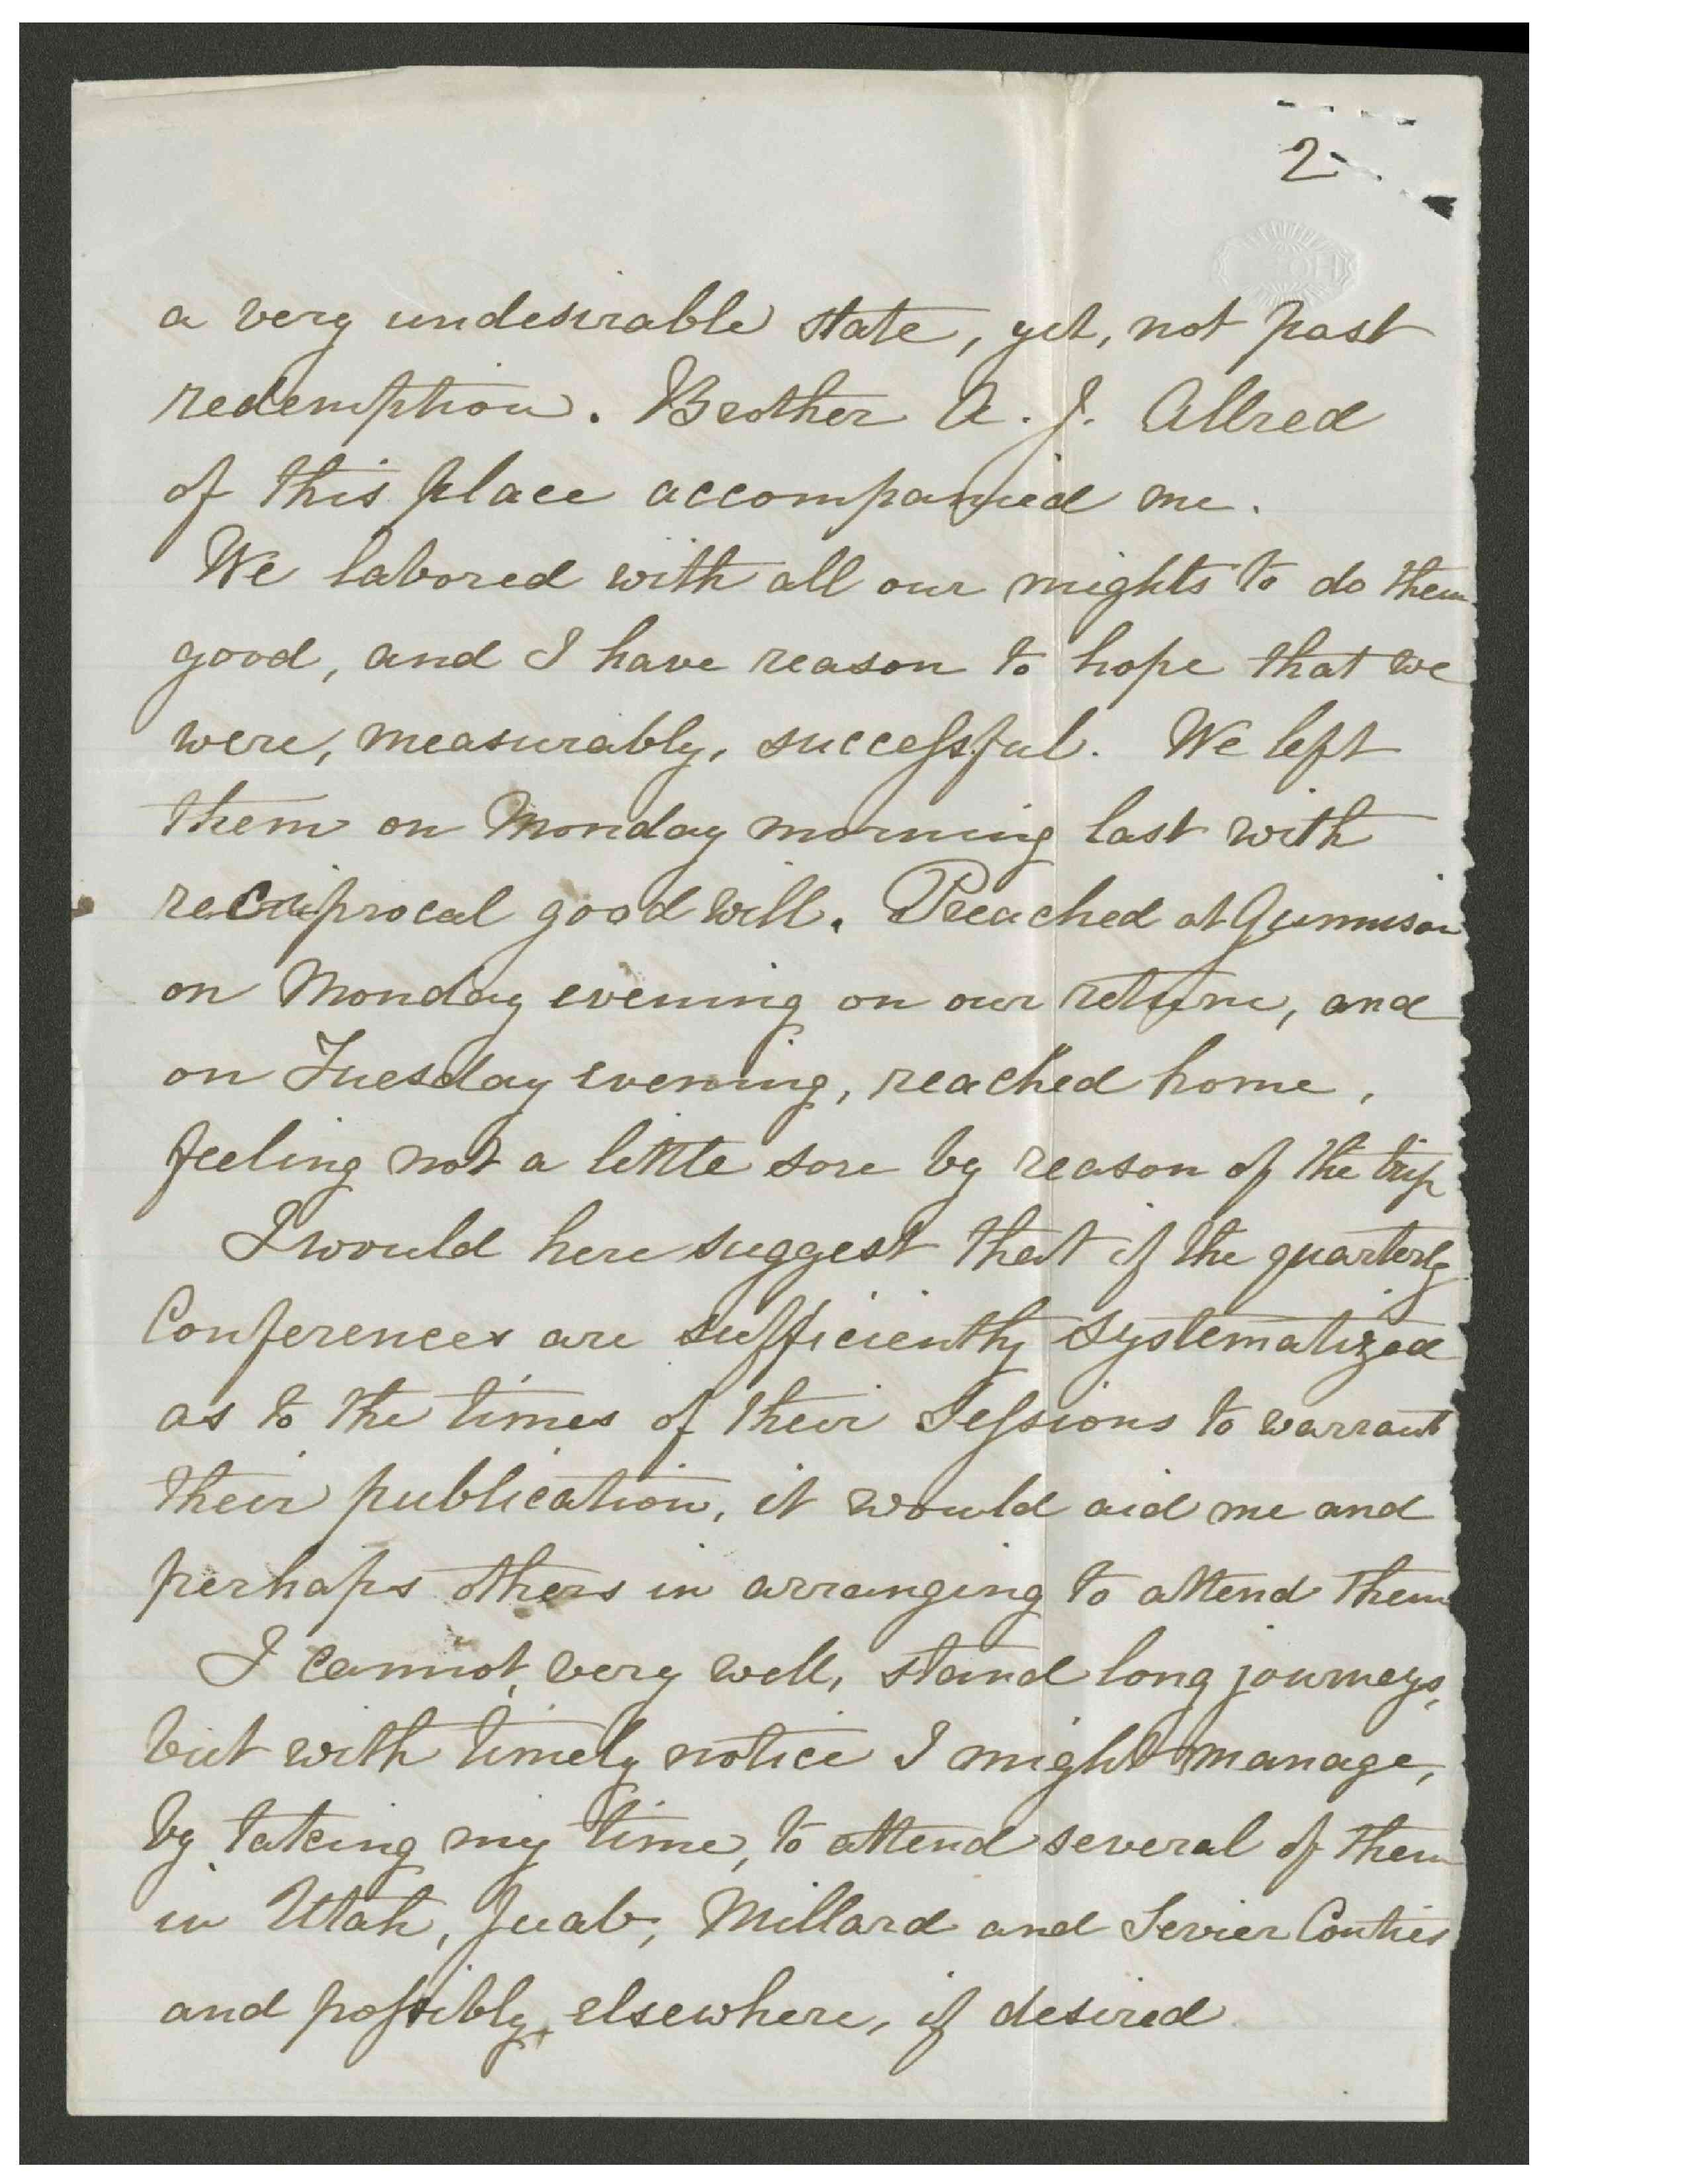 2
a very undesirable state, yet, not past
redemption. Brother A. J. Allred
of this place accompanied me.
We labored with all our mights to do them
good, and I have reason to hope that we
were, measurably, successful. We left
them on Monday morning last with
reciprocal good will. Preached at Gunnison
on Monday evening on our return, and
on Tuesday evening, reached home,
feeling not a little sore by reason of the trip
I would here suggest that if the quarterly
Conferences are sufficiently systematized
as to the times of their Sessions to warrant
their publication, it would aid me and
perhaps others in arranging to attend them
I cannot, very well, stand long journeys,
but with timely notice I might manage,
by taking my time, to attend several of them
in Utah, Juab, Millard and Sevier Conties
and possibly, elsewhere, if desired